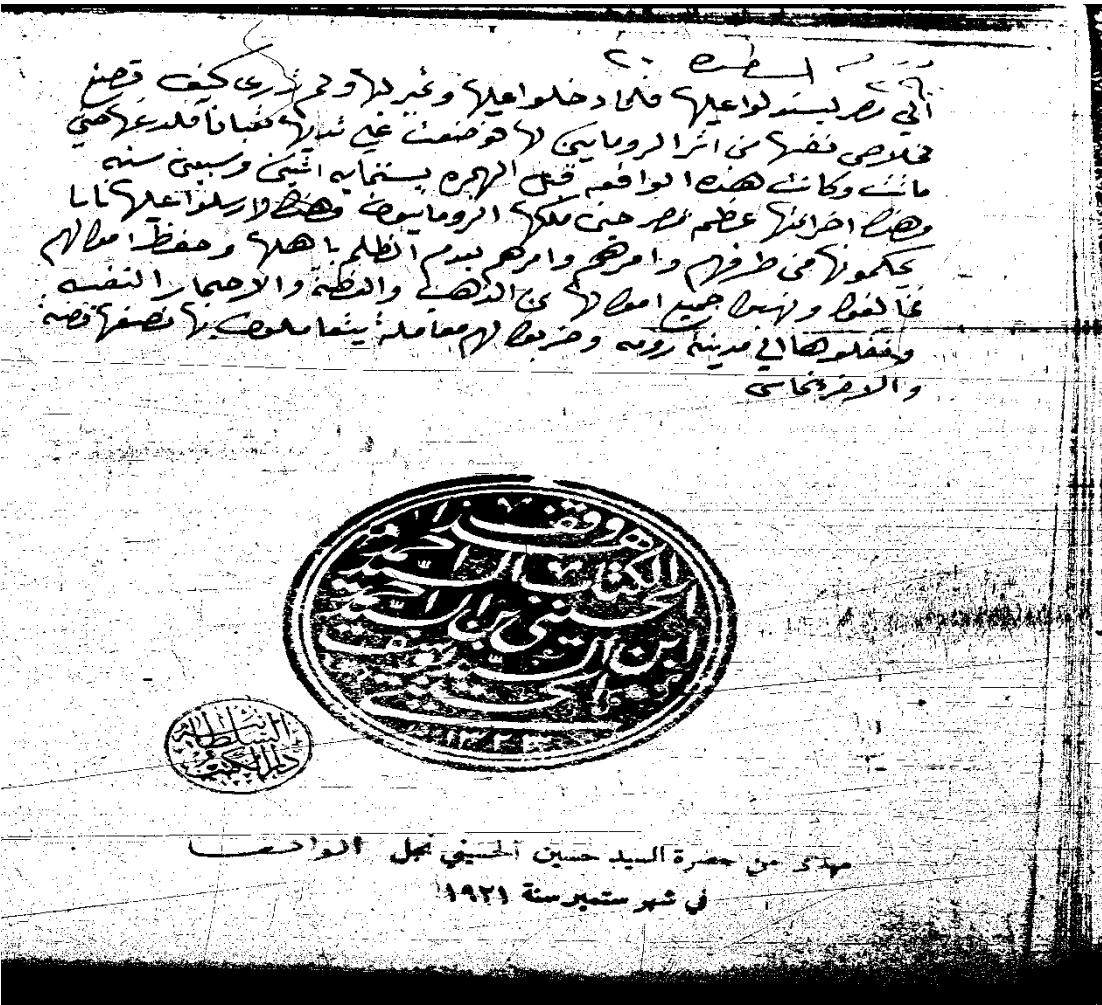 الي مصر ليستولوا عليها فلما دخلوا عليها وغيرها ولم تدري كيف تصنع
في خلاص نفسها من اثر الرومانيين لها هو صنعت علي ثديها ثعباناً فلدغها حتي
ماتت وكانت هذه الواقعه قبل الهجره بستمايه اثنين وسبعين سنه
وهذه اخر عظم مصر حين ملكها الرومانيون ارسلوا عليها نابا
يحكمونها من طرفهم وامرهم وامرهم بعدم الظلم باهلها وحفظ اموالهم
فخالفوا ونهبوا جميع اموالها من الذهب والفضة والاحجار النفيسه
ونقلوها الي مدينة رومه وضربوا لهم معاملة يتعاملون بها نصفها فضه
والاخر نحاس
وقف هذا
الكتاب السيد احمد
الحسيني بن السيد احمد
ابن السيد يوسف
الحسيني
دار الكتب السلطانية
مهدى من حضرة السيد حسين الحسيني نجل الواقف
في شهر ستمبر سنة ١٩٢١